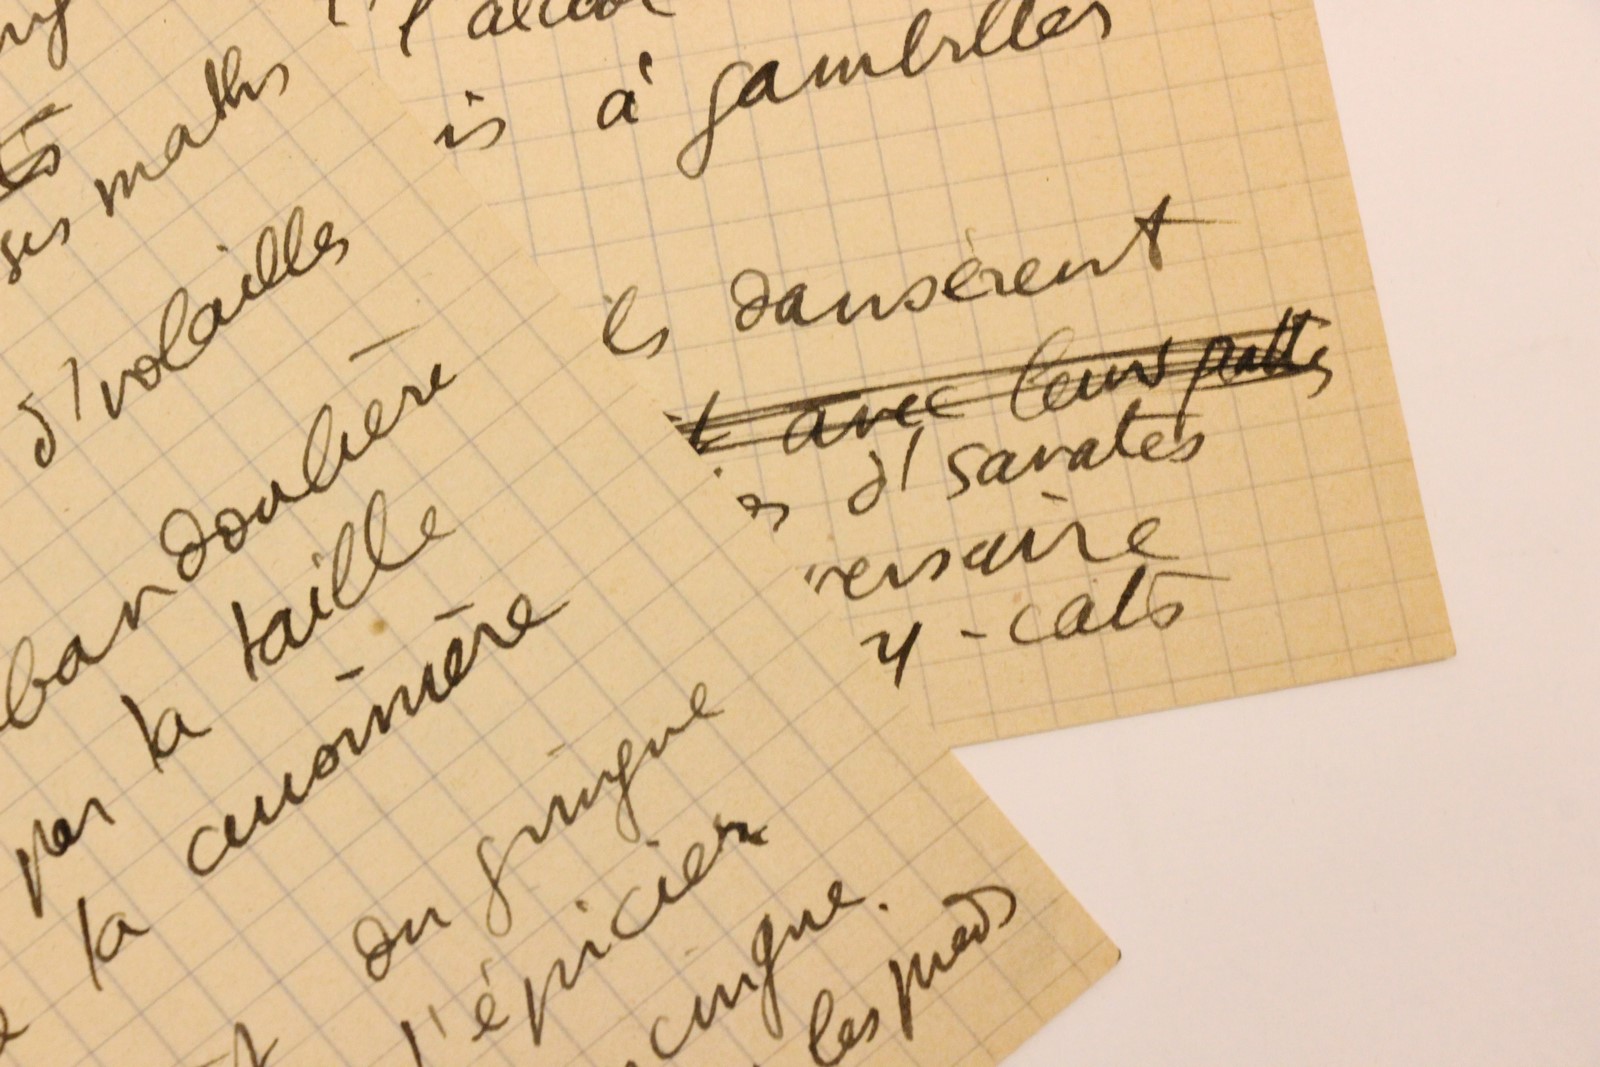 ses maths
d'volailles
bandoulière
par la taille
la cuisinière
du gringue
l'épicier
cingue.
les pieds
l'alcool
is à gambilles
ils dansèrent
t avec leurs pattes
es d'savates
versaire
y-cats